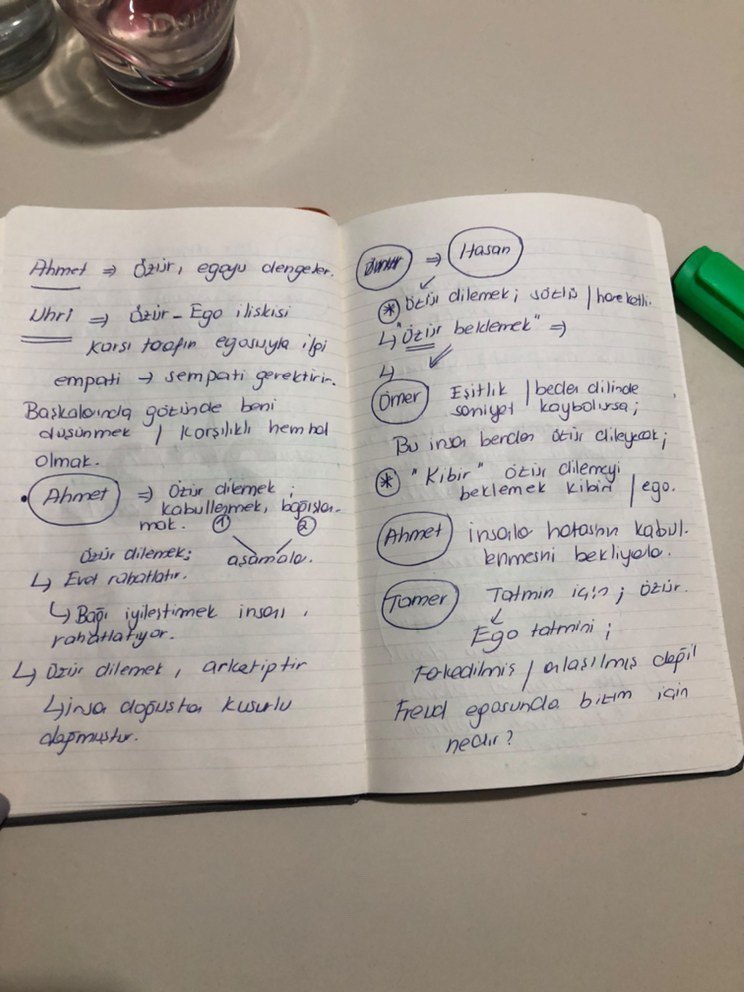 Ahmet ⇒ Özür, egoyu dengeler.
Uhri ⇒ Özür - Ego iliskisi
karsı tarafın egosuyla ilgi
empati → sempati gerektirir.
Başkalarında gözünde beni
düşünmek / karşılıklı hembal
olmak.
• Ahmet ⇒ Özür dilemek;
kabullenmek, bağışlan-
mak. ① ②
özür dilemek; aşamala.
↳ Evet rahatlatır.
↳ Bağı iyileştimek insanı,
rahatlatıyor.
↳ Özür dilemek, arketiptir
↳ insa doğusta kusurlu
doğmuştur.
⇒ Hasan
* Özür dilemek; sözlü / hareketli.
↳ "Özür beklemek" ⇒
↳
Ömer Eşitlik / beden dilinde
samiyet kaybolursa;
Bu insa benden özür dileyecek;
* "Kibir" özür dilemeyi
beklemek kibiri / ego.
Ahmet insala hatasını kabul.
lenmesni bekliyola.
Tamer Tatmin için; özür.
Ego tatmini;
Fakedilmis / anlaşılmış değil
Freud egosunda bizim için
nedir?